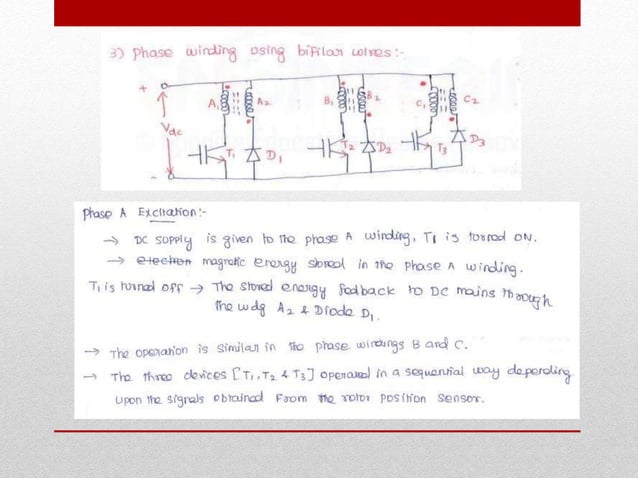 3) Phase winding using bifilar wires:-
+
A1 A2 B1 B2 C1 C2
Vdc
T1 D1 T2 D2 T3 D3
-
Phase A Excitation:-
→ DC supply is given to the phase A winding, T1 is torned ON.
→ electron magnetic energy stored in the phase A winding.
T1 is turned off → The stored energy fedback to DC mains through
the wdg A2 & Diode D1.
→ The operation is similar in the phase windings B and C.
→ The three devices [T1, T2 & T3] operated in a sequential way depending
upon the signals obtained from the rotor position sensor.